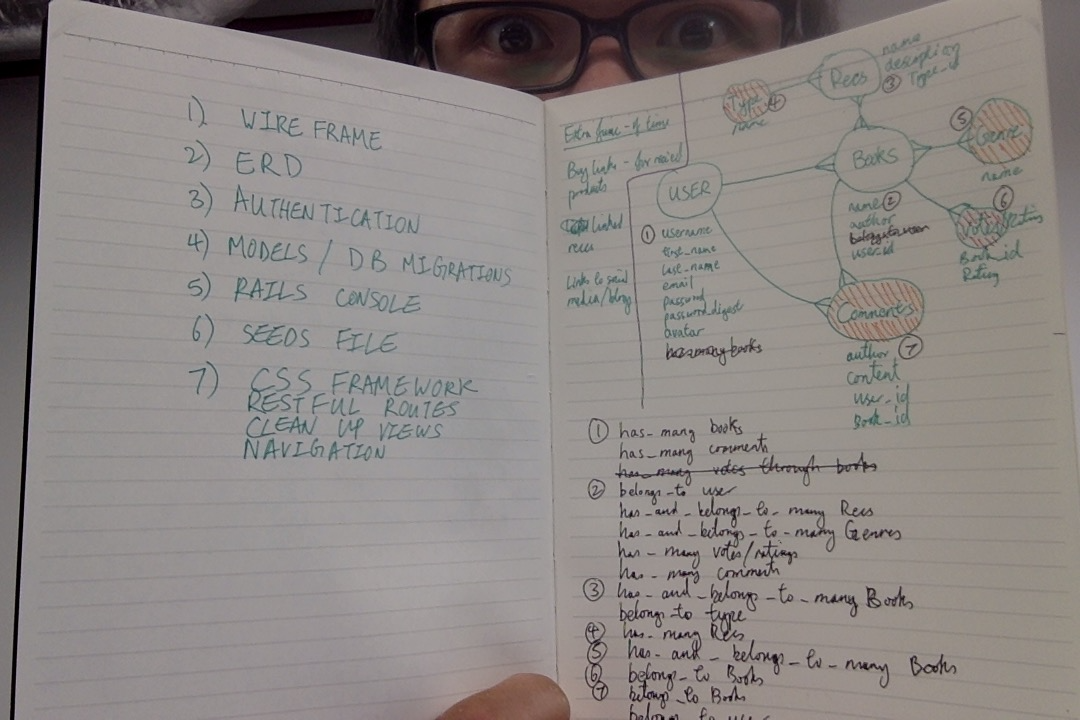 1) WIRE FRAME
2) ERD
3) AUTHENTICATION
4) MODELS / DB MIGRATIONS
5) RAILS CONSOLE
6) SEEDS FILE
7) CSS FRAMEWORK
RESTFUL ROUTES
CLEAN UP VIEWS
NAVIGATION
Extra func - if time
Buy links - for
products
linked
recs
Links to social
media/blogs
USER
① username
first_name
last_name
email
password
password_digest
avatar
has many books
Type ④
name
Recs
③
name
description
Type_id
Books
name ②
author
user_id
⑤
Genre
name
⑥
Votes/
Book_id
Rating
Comments
⑦
author
content
user_id
Book_id
① has_many books
has_many comments
has_many votes through books
② belongs_to user
has_and_belongs_to_many Recs
has_and_belongs_to_many Genres
has_many votes/ratings
has_many comments
③ has_and_belongs_to_many Books
belongs_to type
④ has_many Recs
⑤ has_and_belongs_to_many Books
⑥ belongs_to Books
⑦ belongs_to Books
belongs_to user